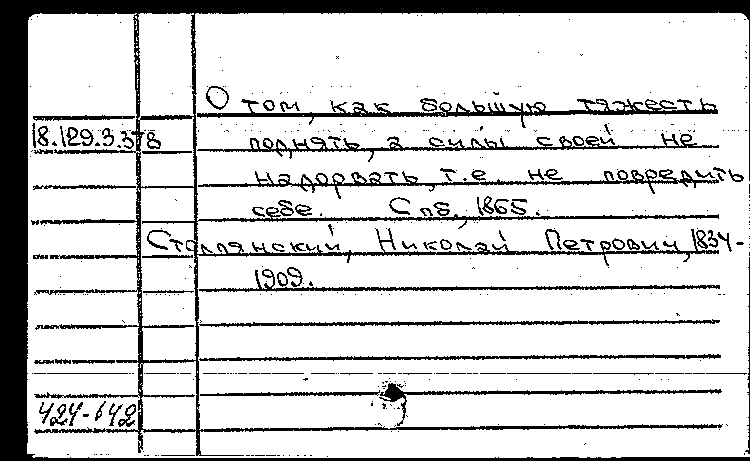 О том, как большую тяжесть
18.129.3.378 поднять, а силы своей не
надорвать, т.е. не повредить
себе. Спб., 1865.
Столпянский, Николай Петрович, 1834-
1909.
424-642